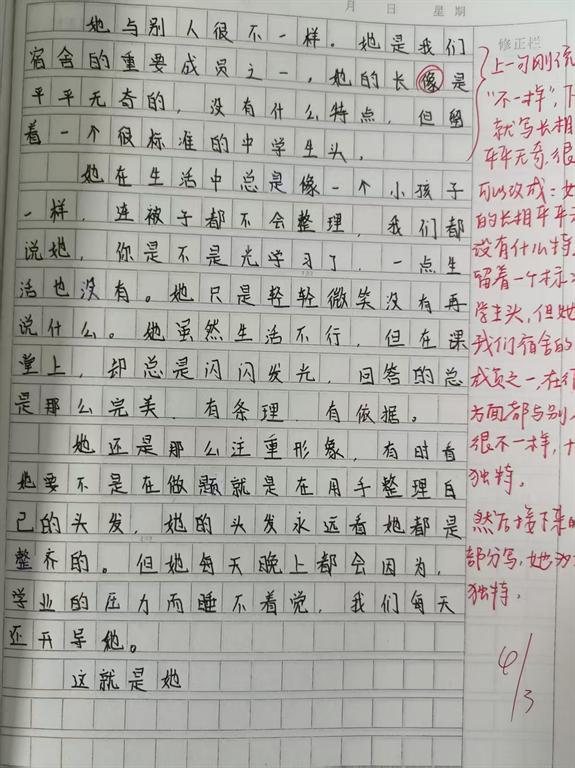 月 日 星期
修正栏
她与别人很不一样。她是我们
宿舍的重要成员之一,她的长像是
平平无奇的,没有什么特点,但留
着一个很标准的中学生头。
她在生活中总是像一个小孩子
一样,连被子都不会整理,我们都
说她,你是不是光学习了,一点生
活也没有。她只是轻轻微笑没有再
说什么。她虽然生活不行,但在课
堂上,却总是闪闪发光,回答的总
是那么完美,有条理,有依据。
她还是那么注重形象,有时看
她要不是在做题就是在用手整理自
己的头发,她的头发永远看她都是
整齐的。但她每天晚上都会因为,
学业的压力而睡不着觉,我们每天
还开导她。
这就是她
上一句刚
"不一样",
就写长相
平平无奇,很
可以改成:
的长相平平
没有什么特
留着一个标
学生头,但她
我们宿舍的
成员之一,在
方面都与别
很不一样,十
独特。
然后接下来的
部分写,她
独特。